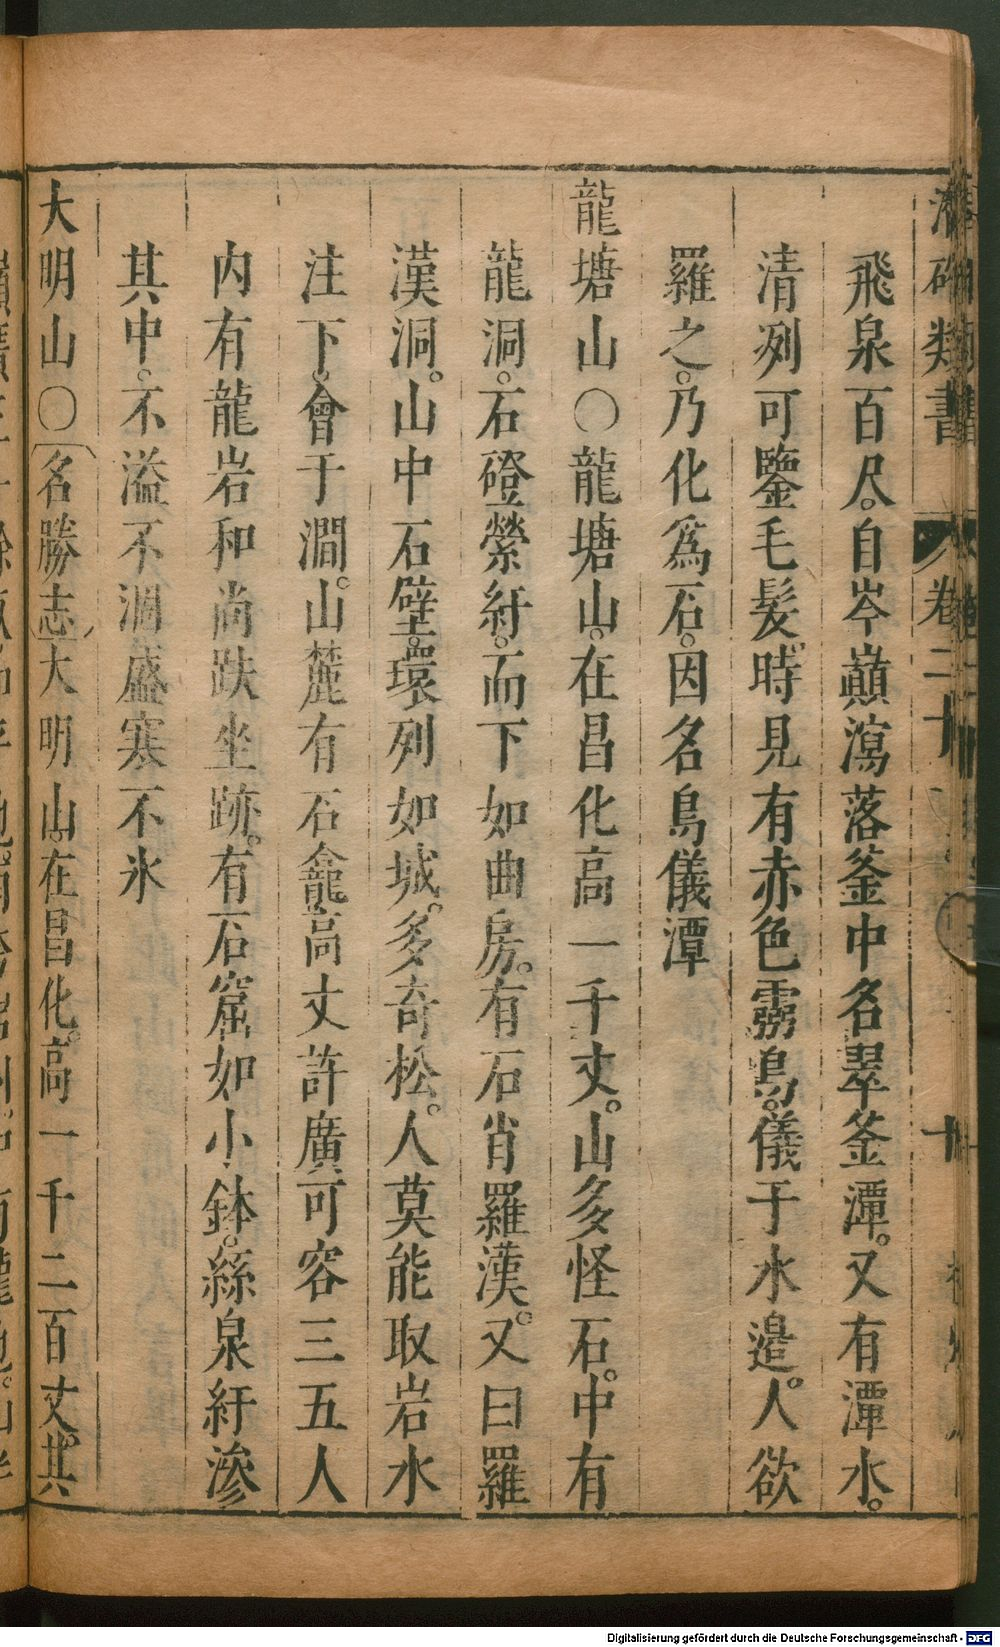 潛確類書 卷二十 十
飛泉百尺。自岑巔瀉落釜中名翠釜潭。又有潭水。
清冽可鑒毛髮。時見有赤色霧鳥。儀于水邉。人欲
羅之。乃化爲石。因名鳥儀潭
龍塘山〇龍塘山。在昌化高一千丈。山多怪石。中有
龍洞。石磴縈紆。而下如曲房。有石肖羅漢。又曰羅
漢洞。山中石壁。環列如城。多奇松。人莫能取岩水
注下。會于澗。山麓有石龕。高丈許廣可容三五人
内有龍岩和尚趺坐跡。有石窟如小鉢。絲泉紆滲
其中。不溢不涸盛寒不氷
大明山〇名勝志大明山。在昌化。高一千二百丈。其
Digitalisierung gefördert durch die Deutsche Forschungsgemeinschaft - DFG